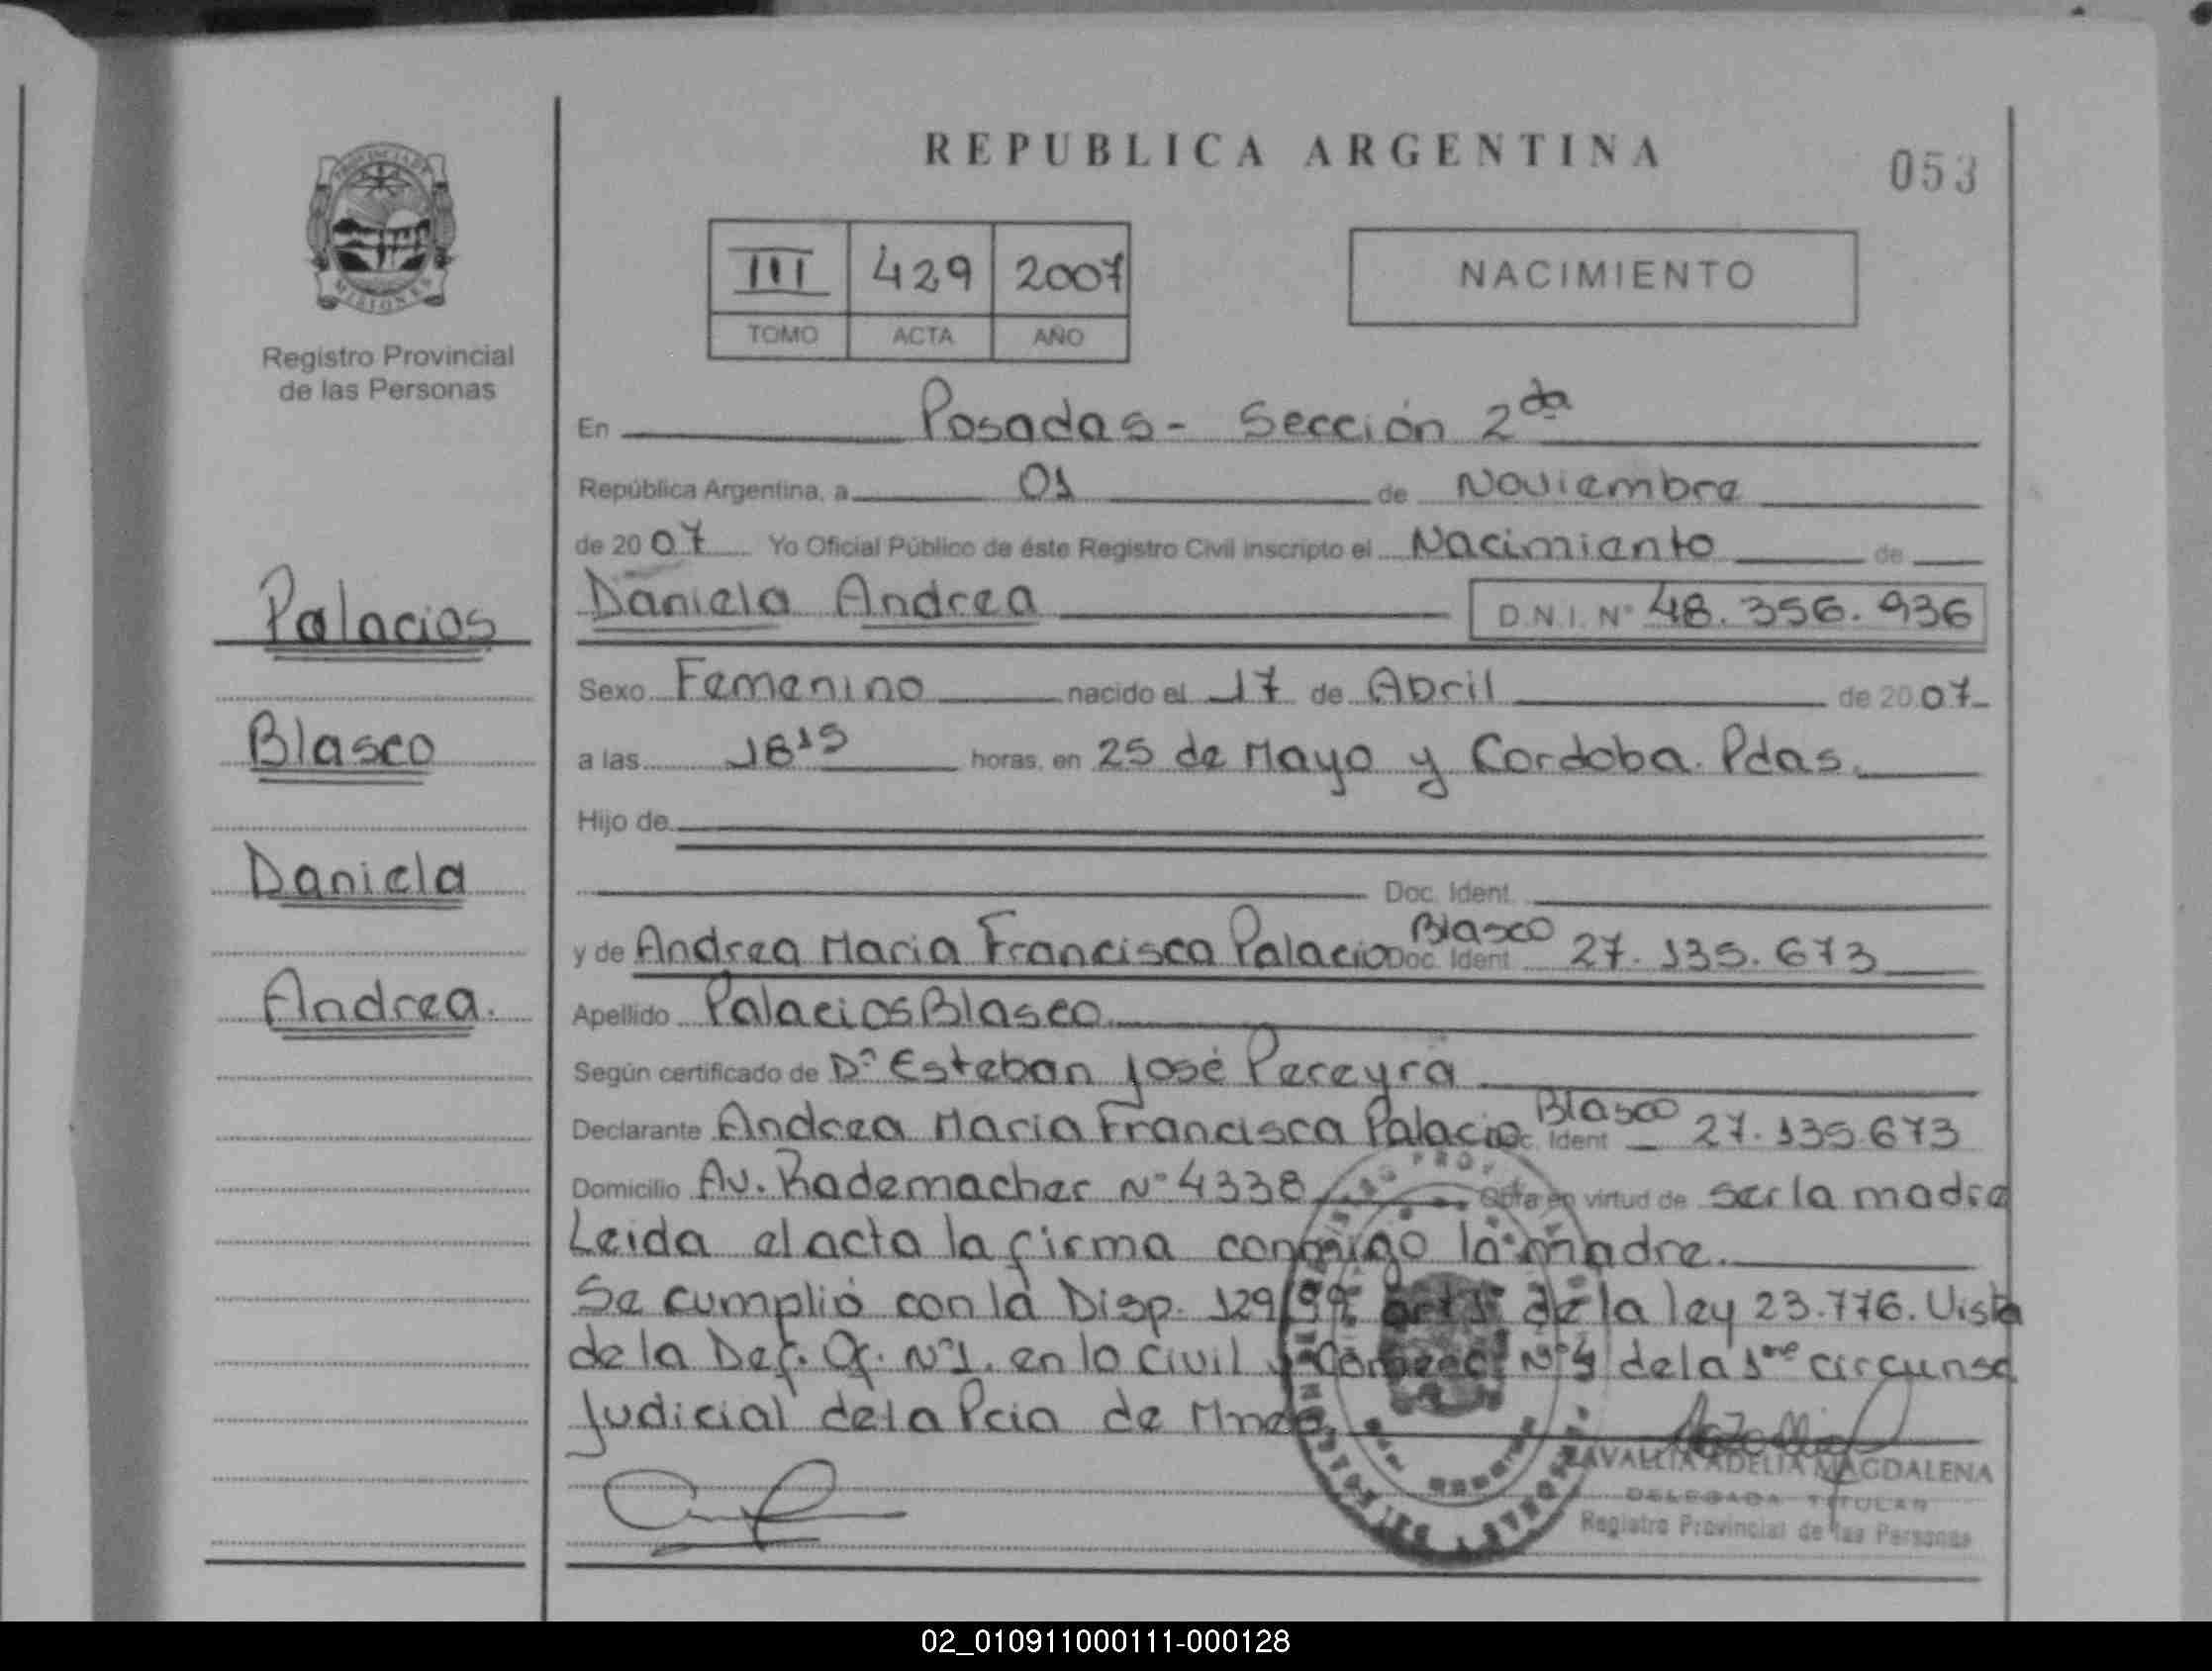 REPUBLICA ARGENTINA
053
PROVINCIA DE
MISIONES
Registro Provincial
de las Personas
III 429 2007
TOMO ACTA AÑO
NACIMIENTO
En Posadas - Sección 2da
República Argentina, a 01 de Noviembre
de 2007 Yo Oficial Público de éste Registro Civil inscripto el Nacimiento de
Daniela Andrea D.N.I. Nº 48.356.936
Sexo Femenino nacido el 17 de Abril de 2007
a las 18 15 horas, en 25 de Mayo y Cordoba. Pdas.
Hijo de
Doc. Ident.
y de Andrea Maria Francisca Palacio Blasco Doc. Ident 27.135.673
Apellido Palacios Blasco
Según certificado de Dº Esteban José Pereyra
Declarante Andrea Maria Francisca Palacio Blasco Ident 27.135.673
Domicilio Av. Rademacher Nº 4338 Obra en virtud de ser la madre
Leida el acta la firma conmigo la madre.
Se cumplió con la Disp. 129/99 art 1º de la ley 23.776. Vista
de la Def. Of. Nº1. en lo Civil y Comerc. Nº4 de la 1ra circunsc
Judicial de la Pcia de Mnes
Palacios
Blasco
Daniela
Andrea.
ZAVALLIA ADELIA MAGDALENA
DELEGADA TITULAR
Registro Provincial de las Personas
02_010911000111-000128